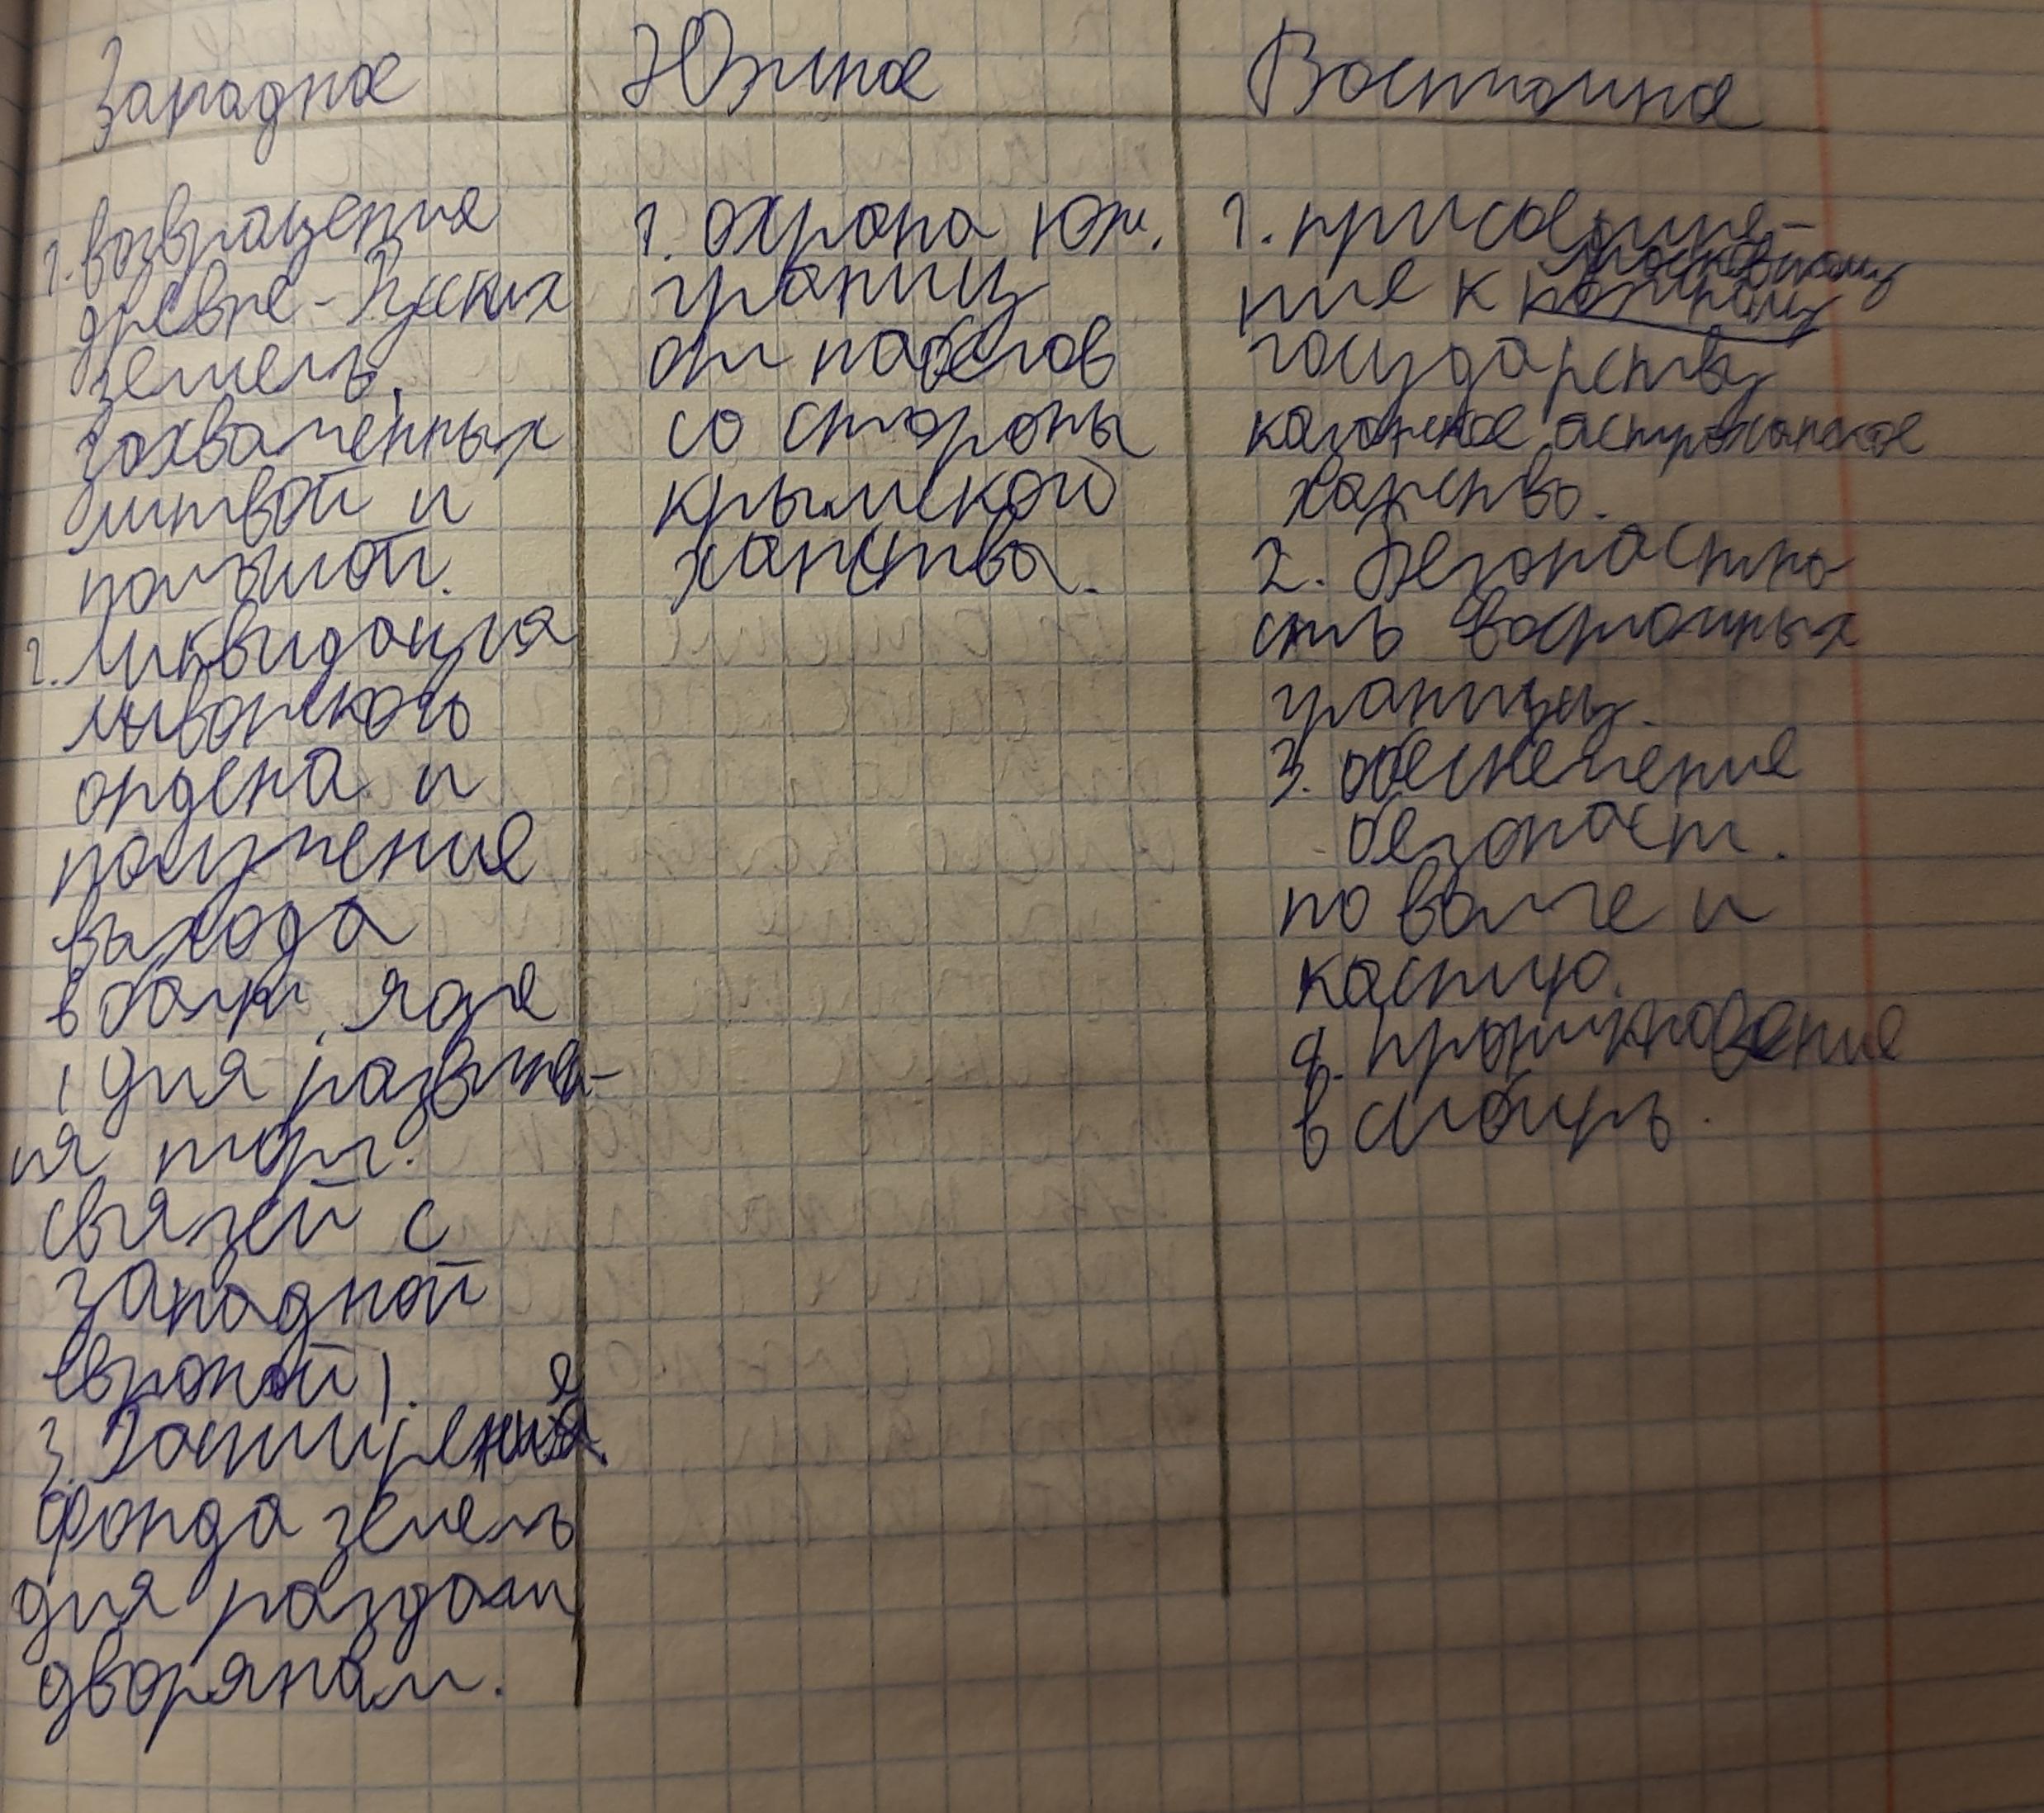 Западное
1. возвращения
древне-Русских
земель,
захваченных
литвой и
польшой.
2. Ликвидация
ливонского
ордена и
получение
выхода
в балт.
(для развити-
ия торг.
связей с
западной
европой).
3. Расширения
фонда земель
для раздачи
дворянам.
Южное
1. охрана юж.
границ
от набегов
со стороны
крымской
ханства.
Восточное
1. присоедине-
московскому
ние к
государству
казанское астраханское
ханство.
2. Безопастно
сть восточных
границы.
3. обеспечение
безопаст.
по волге и
каспию.
4. проникновение
в сибирь.